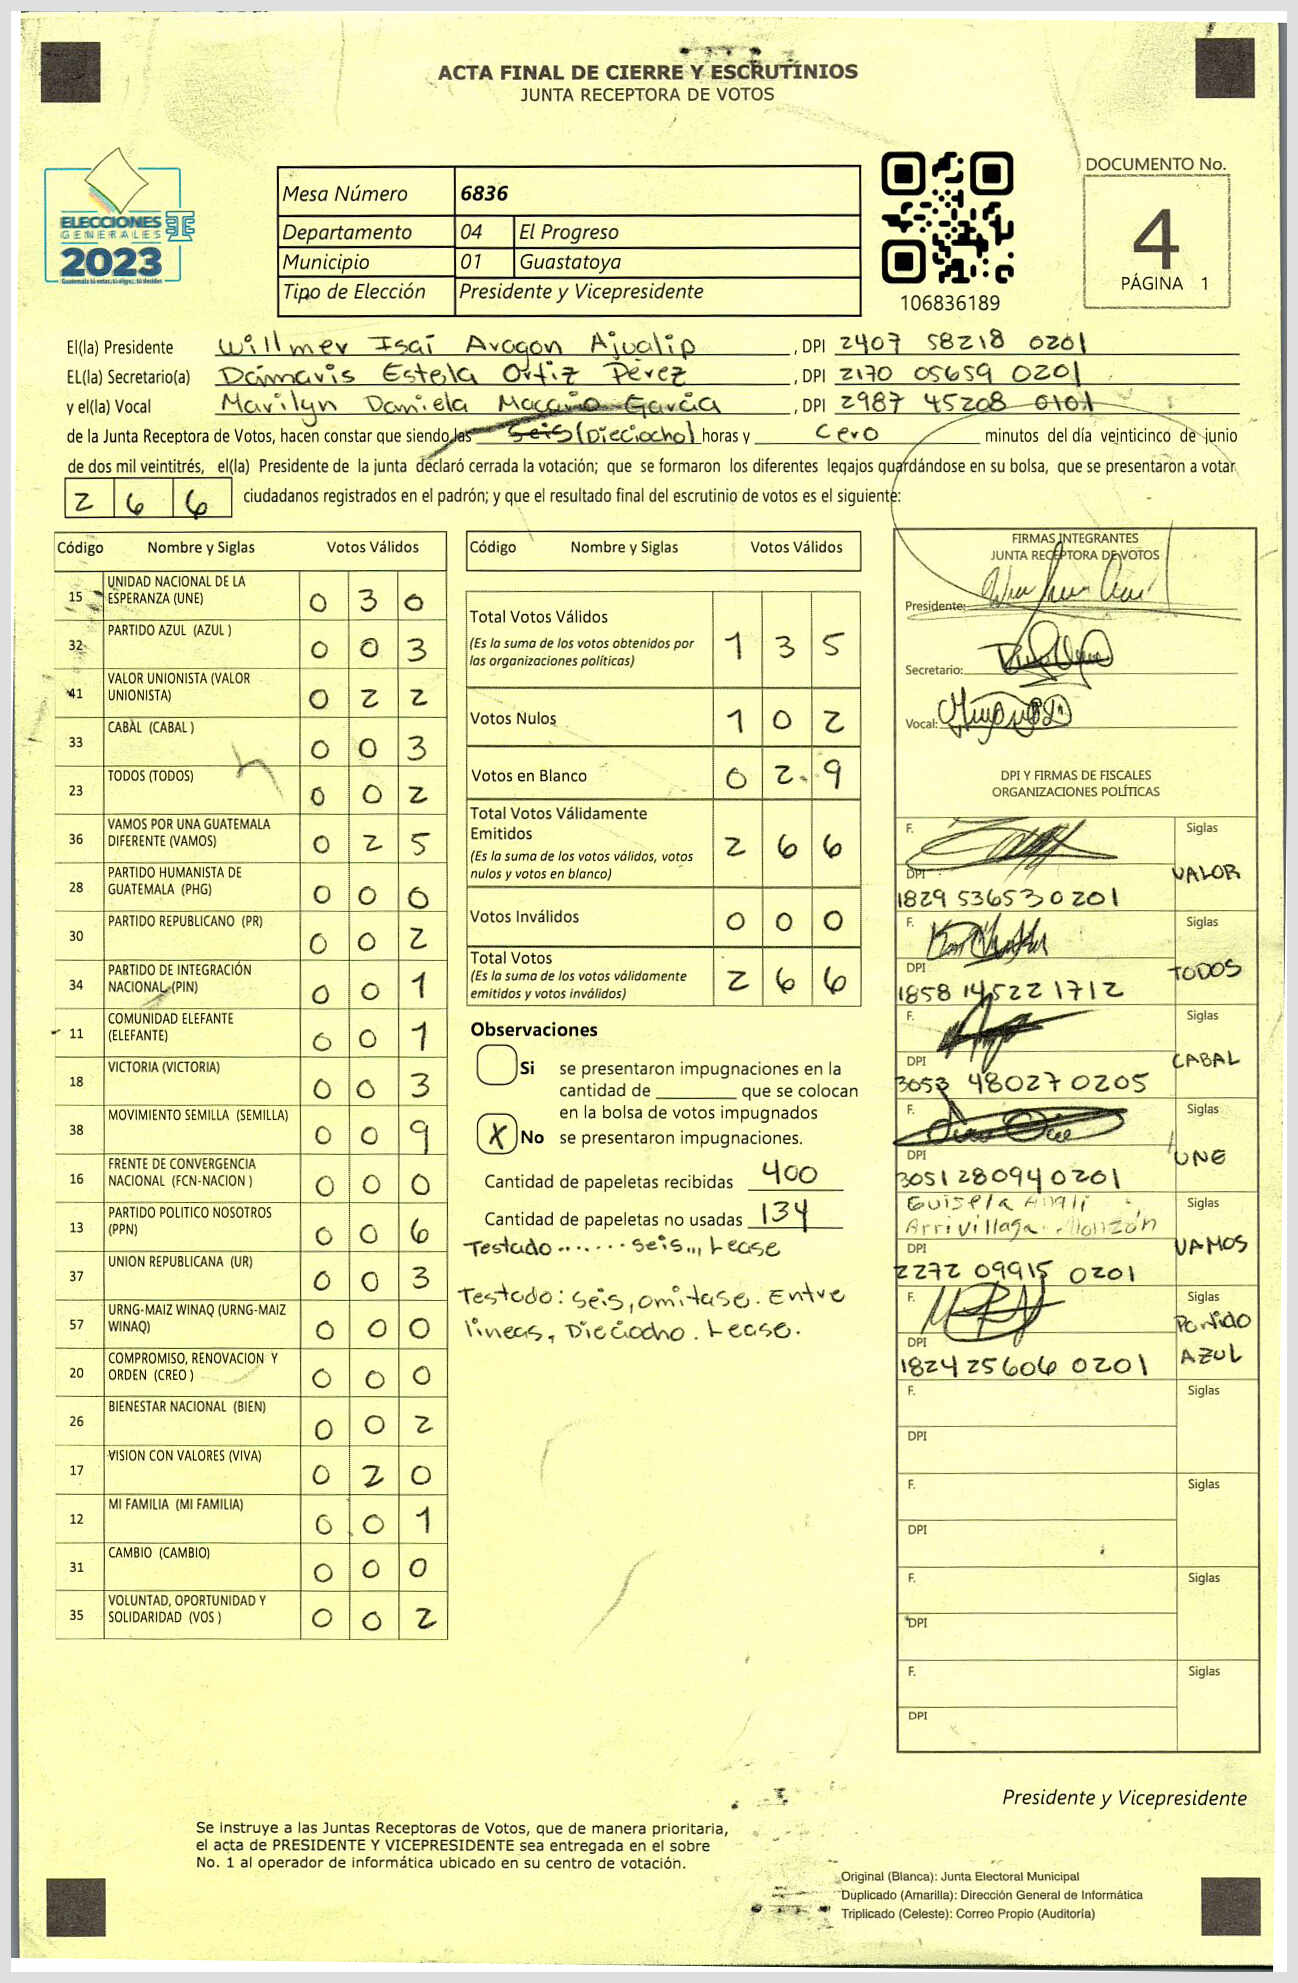 ACTA FINAL DE CIERRE Y ESCRUTINIOS
JUNTA RECEPTORA DE VOTOS
ELECCIONES
GENERALES
2023
Mesa Número 6836
Departamento 04 El Progreso
Municipio 01 Guastatoya
Tipo de Elección Presidente y Vicepresidente
106836189
DOCUMENTO No.
4
PÁGINA 1
El(la) Presidente Willmer Isaí Aragon Ajualip , DPI 2407 58218 0201
EL(la) Secretario(a) Dámaris Estela Ortiz Pérez , DPI 2170 05659 0201
y el(la) Vocal Marilyn Daniela Macario García , DPI 2987 45208 0101
de la Junta Receptora de Votos, hacen constar que siendo las seis (Dieciocho) horas y cero minutos del día veinticinco de junio
de dos mil veintitrés, el(la) Presidente de la junta declaró cerrada la votación; que se formaron los diferentes legajos guardándose en su bolsa, que se presentaron a votar
2 6 6 ciudadanos registrados en el padrón; y que el resultado final del escrutinio de votos es el siguiente:
Código Nombre y Siglas Votos Válidos
15 UNIDAD NACIONAL DE LA ESPERANZA (UNE) 0 3 0
32 PARTIDO AZUL (AZUL ) 0 0 3
41 VALOR UNIONISTA (VALOR UNIONISTA) 0 2 2
33 CABAL (CABAL ) 0 0 3
23 TODOS (TODOS) 0 0 2
36 VAMOS POR UNA GUATEMALA DIFERENTE (VAMOS) 0 2 5
28 PARTIDO HUMANISTA DE GUATEMALA (PHG) 0 0 0
30 PARTIDO REPUBLICANO (PR) 0 0 2
34 PARTIDO DE INTEGRACIÓN NACIONAL (PIN) 0 0 1
11 COMUNIDAD ELEFANTE (ELEFANTE) 0 0 1
18 VICTORIA (VICTORIA) 0 0 3
38 MOVIMIENTO SEMILLA (SEMILLA) 0 0 9
16 FRENTE DE CONVERGENCIA NACIONAL (FCN-NACION ) 0 0 0
13 PARTIDO POLITICO NOSOTROS (PPN) 0 0 6
37 UNION REPUBLICANA (UR) 0 0 3
57 URNG-MAIZ WINAQ (URNG-MAIZ WINAQ) 0 0 0
20 COMPROMISO, RENOVACION Y ORDEN (CREO ) 0 0 0
26 BIENESTAR NACIONAL (BIEN) 0 0 2
17 VISION CON VALORES (VIVA) 0 2 0
12 MI FAMILIA (MI FAMILIA) 0 0 1
31 CAMBIO (CAMBIO) 0 0 0
35 VOLUNTAD, OPORTUNIDAD Y SOLIDARIDAD (VOS ) 0 0 2
Código Nombre y Siglas Votos Válidos
Total Votos Válidos 1 3 5
(Es la suma de los votos obtenidos por
las organizaciones políticas)
Votos Nulos 1 0 2
Votos en Blanco 0 2 9
Total Votos Válidamente
Emitidos 2 6 6
(Es la suma de los votos válidos, votos
nulos y votos en blanco)
Votos Inválidos 0 0 0
Total Votos 2 6 6
(Es la suma de los votos válidamente
emitidos y votos inválidos)
Observaciones
Si se presentaron impugnaciones en la
cantidad de ________ que se colocan
en la bolsa de votos impugnados
X No se presentaron impugnaciones.
Cantidad de papeletas recibidas 400
Cantidad de papeletas no usadas 134
Testado ....... seis,,, Lease
Testado: seis, omitase. Entre
lineas, Dieciocho. Lease.
FIRMAS INTEGRANTES
JUNTA RECEPTORA DE VOTOS
Presidente:
Secretario:
Vocal:
DPI Y FIRMAS DE FISCALES
ORGANIZACIONES POLÍTICAS
F. Siglas
DPI VALOR
1829 53653 0201
F. Siglas
DPI TODOS
1858 14522 1712
F. Siglas
DPI CABAL
3053 48027 0205
F. Siglas
DPI UNE
3051 28094 0201
F. Guisela Anali Siglas
Arrivillaga Monzón
DPI VAMOS
2272 09915 0201
F. Siglas
DPI Partido
1824 25606 0201 AZUL
F. Siglas
DPI
F. Siglas
DPI
F. Siglas
DPI
F. Siglas
DPI
Presidente y Vicepresidente
Se instruye a las Juntas Receptoras de Votos, que de manera prioritaria,
el acta de PRESIDENTE Y VICEPRESIDENTE sea entregada en el sobre
No. 1 al operador de informática ubicado en su centro de votación.
Original (Blanca): Junta Electoral Municipal
Duplicado (Amarilla): Dirección General de Informática
Triplicado (Celeste): Correo Propio (Auditoría)